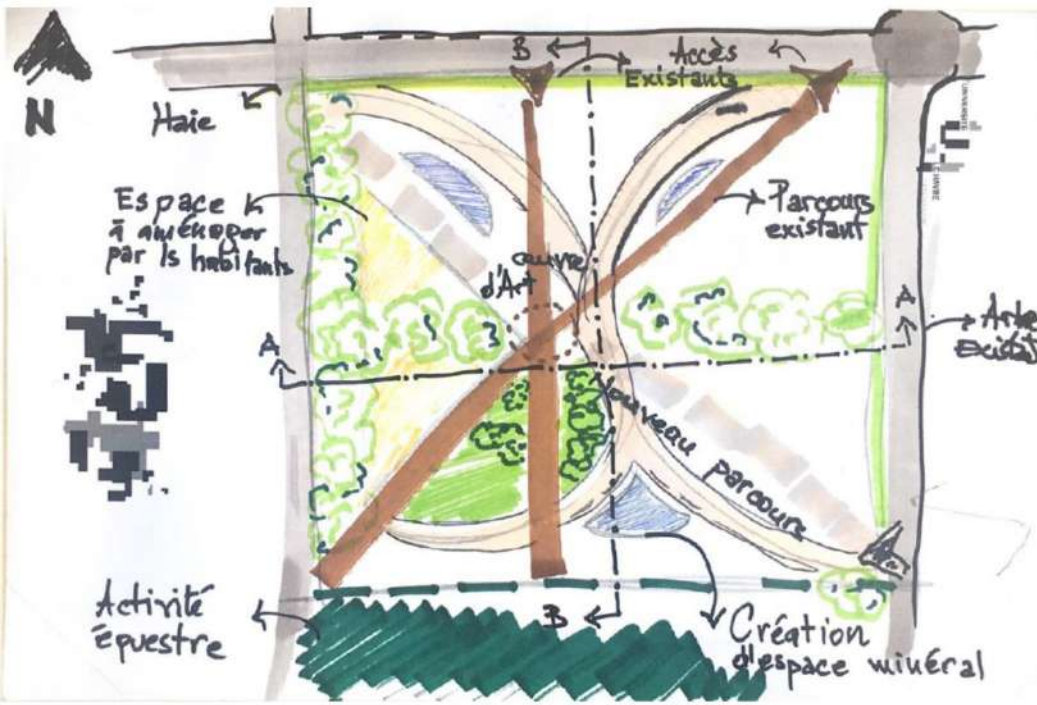 N
Haie
B
Accès
Existants
Espace
à aménager
par ls habitants
Parcours
existant
œuvre
d'Art
A
A
Nouveau parcours
Activité
épuestre
B
Création
d'espace minéral
UNIVERSITÉ